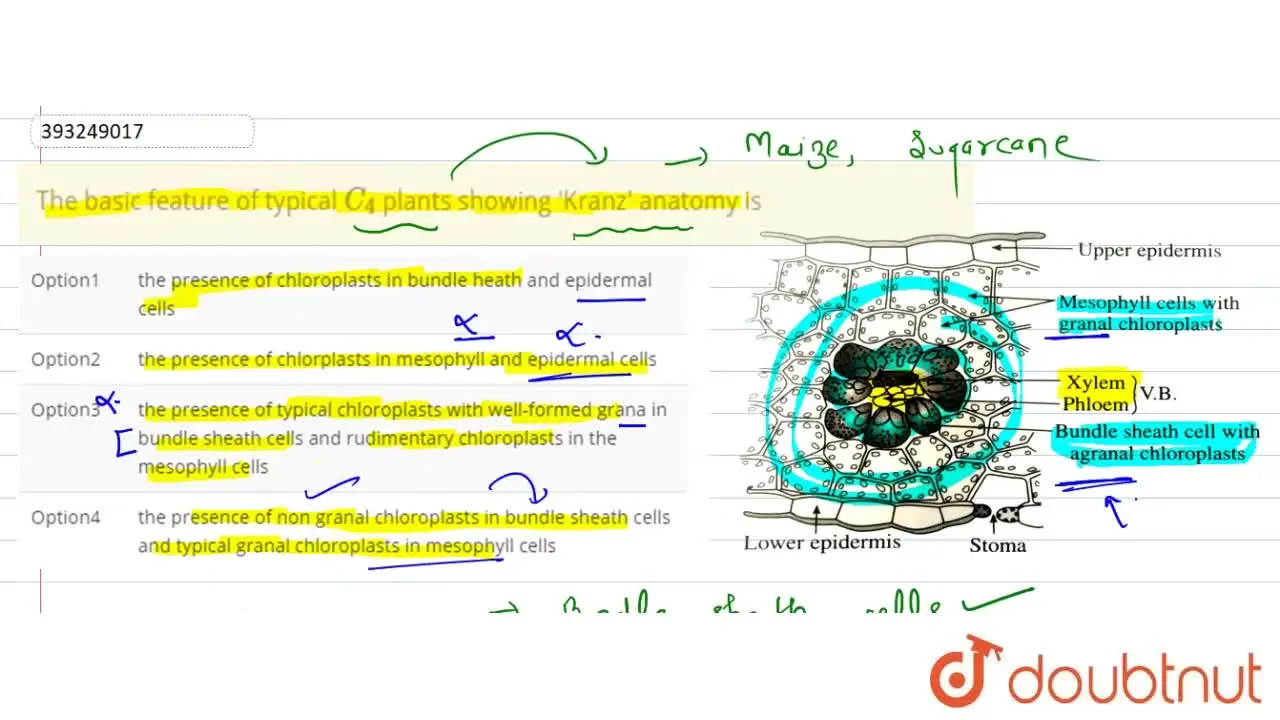 393249017
Maize, Sugarcane
The basic feature of typical C4 plants showing 'Kranz' anatomy is
Option1 the presence of chloroplasts in bundle heath and epidermal
cells
Option2 the presence of chlorplasts in mesophyll and epidermal cells
Option3 the presence of typical chloroplasts with well-formed grana in
bundle sheath cells and rudimentary chloroplasts in the
mesophyll cells
Option4 the presence of non granal chloroplasts in bundle sheath cells
and typical granal chloroplasts in mesophyll cells
Upper epidermis
Mesophyll cells with
granal chloroplasts
Xylem
Phloem
V.B.
Bundle sheath cell with
agranal chloroplasts
Lower epidermis
Stoma
doubtnut